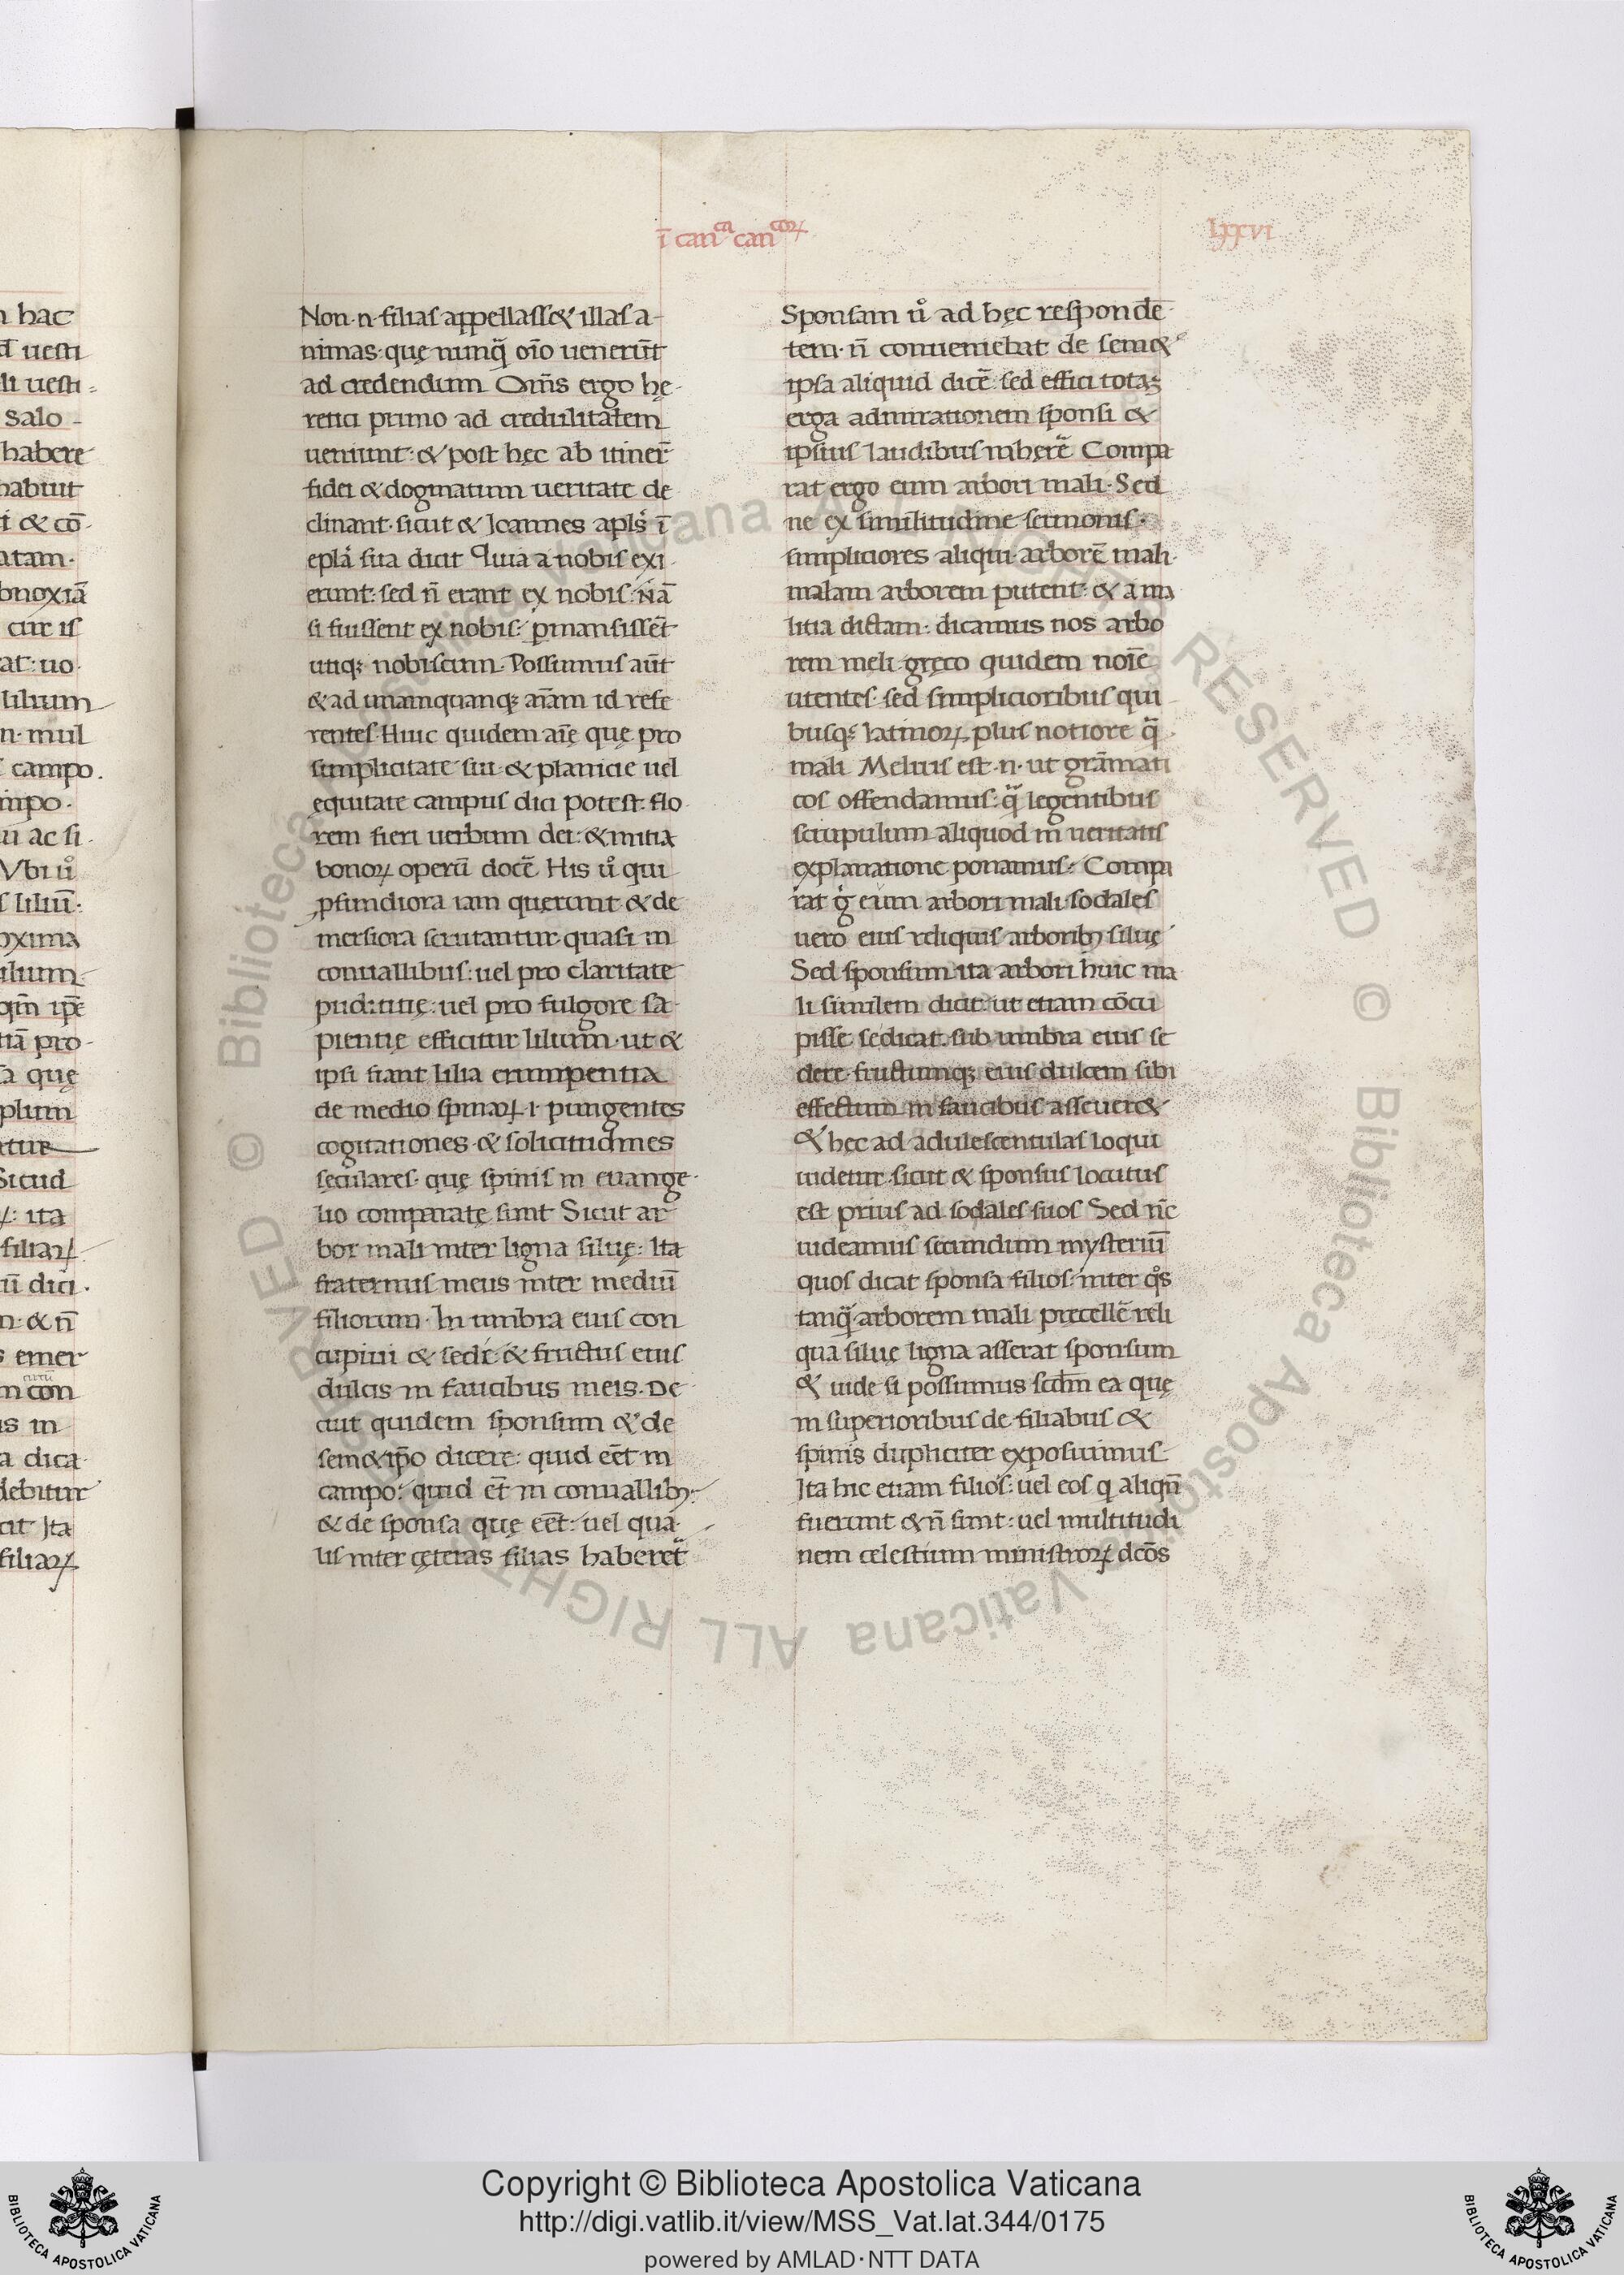 n hac
đ uesti
li uesti-
Salo-
habere
habuit
i & cō-
atam·
bnoxiā
cur is
at: uo·
lilium
n· mul
campo.
mpo·
u ac si·
Vbi u̇
s liliū:
oxima
ilium
qm̄ ip̄e
tiā pro-
a quę
plum
atur
Sicud
: ita
filiaꝝ
ū dici·
n· & n̄
s emer
n con
us in
a dica
debitur
cit Ita
filiaꝝ
ī can^ca can^coꝝ
lxxvi
Non·n·filias appellass& illas a-
nimas· quę nunq̄ oīo uenerūt
ad credendum Om̄s ergo hę-
retici primo ad credulitatem
ueniunt: & post hęc ab itiner̄
fidei & dogmatum ueritate de
clinant· sicut & Joannes apl̄s ī
epl̄a sua dicit Quia a nobis exi
erunt: sed n̄ erant ex nobis: nā
si fuissent ex nobis: ꝑmansissēt
utiqꝫ nobiscum· Possumus aūt
& ad unamquanqꝫ aīam id refe
rentes· Huic quidem aīę quę pro
simplicitate sui· & planicie uel
equitate campus dici potest· flo
rem fieri uerbum dei: & initia
bonoꝝ operū docē His u̇ qui
ꝓfundiora iam querunt & de
mersiora scrutantur quasi in
conuallibus: uel pro claritate
pudititię: uel pro fulgore sa-
pientię efficitur lilium· ut &
ipsi fiant lilia erumpentia
de medio spinaꝝ·i· pungentes
cogitationes· & solicitudines
sęculares· quę spinis in euange-
lio comparatę sunt Sicut ar
bor mali inter ligna siluę: Ita
fraternus meus inter mediū
filiorum· In umbra eius con
cupiui & sedi: & fructus eius
dulcis in faucibus meis· De
cuit quidem sponsum & de
sem&ip̄o dicere: quid eēt in
campo: quid ēt in conuallibꝫ:
& de sponsa quę eēt: uel qua-
lis inter cęteras filias haberet̄
Sponsam u̇ ad hęc respondē-
tem· n̄ conueniebat de sem&
ipsa aliquid dicē: sed effici totaꝫ
erga admirationem sponsi &
ipsius laudibus inhęrē Compa
rat ergo eum arbori mali· Sed
ne ex similitudine sermonis·
simpliciores aliqui· arborē mali·
malam arborem putent: & a ma
litia dictam· dicamus nos arbo
rem meli· gręco quidem noīe
utentes· sed simplicioribus qui
busqꝫ latinoꝝ plus notiore q̄
mali Melius est·n· ut grāmati
cos offendamus: q̄ legentibus
scrupulum aliquod in ueritatis
explanatione ponamus· Compa
rat g̊ eum arbori mali· sodales
uero eius reliquis arboribꝫ siluę
Sed sponsum ita arbori huic ma
li similem dicit: ut etiam cōcu
pisse se dicat· sub umbra eius se
dere· fructumqꝫ eius dulcem sibi
effectum in faucibus asseuer&
& hec ad adulescentulas loqui
uidetur· sicut & sponsus locutus
est prius ad sodales suos Sed nc̄
uideamus secundum mysteriū
quos dicat sponsa filios: inter q̊s
tanq̄ arborem mali pręcellē reli
qua siluę ligna asserat sponsum
& uide si possumus scdm̄ ea quę
in superioribus de filiabus &
spinis dupliciter exposuimus
Ita hic etiam filios: uel eos q aliqn̄
fuerunt & n̄ sunt: uel multitudi
nem celestium ministroꝝ dcōs
Copyright © Biblioteca Apostolica Vaticana
http://digi.vatlib.it/view/MSS_Vat.lat.344/0175
powered by AMLAD·NTT DATA
BIBLIOTECA APOSTOLICA VATICANA
BIBLIOTECA APOSTOLICA VATICANA
© Biblioteca Apostolica Vaticana ALL RIGHTS RESERVED © Biblioteca Apostolica Vaticana ALL RIGHTS RESERVED